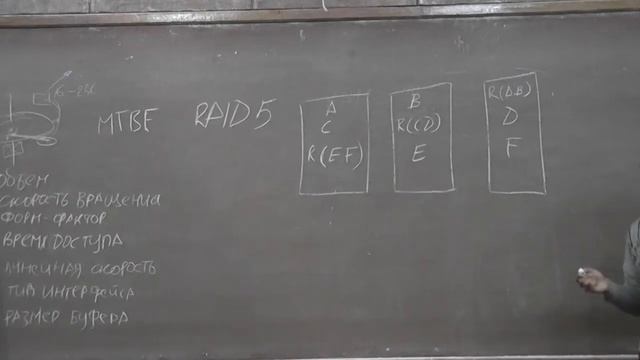 MTBF RAID 5
A
C
R(EF)
B
R(CD)
E
R(AB)
D
F
ОБЪЕМ
СКОРОСТЬ ВРАЩЕНИЯ
ФОРМ-ФАКТОР
ВРЕМЯ ДОСТУПА
ЛИНЕЙНАЯ СКОРОСТЬ
ТИП ИНТЕРФЕЙСА
РАЗМЕР БУФЕРА